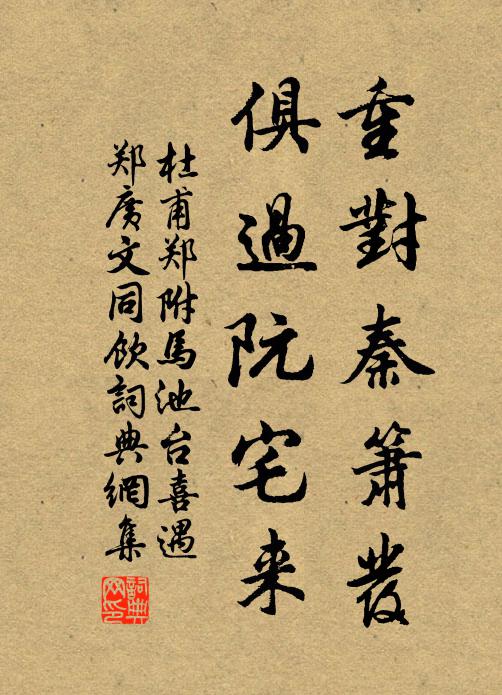 重對秦簫發
俱過阮宅来
杜甫郑附馬池台喜遇
郑廣文同飲詞典網集
詞典网印